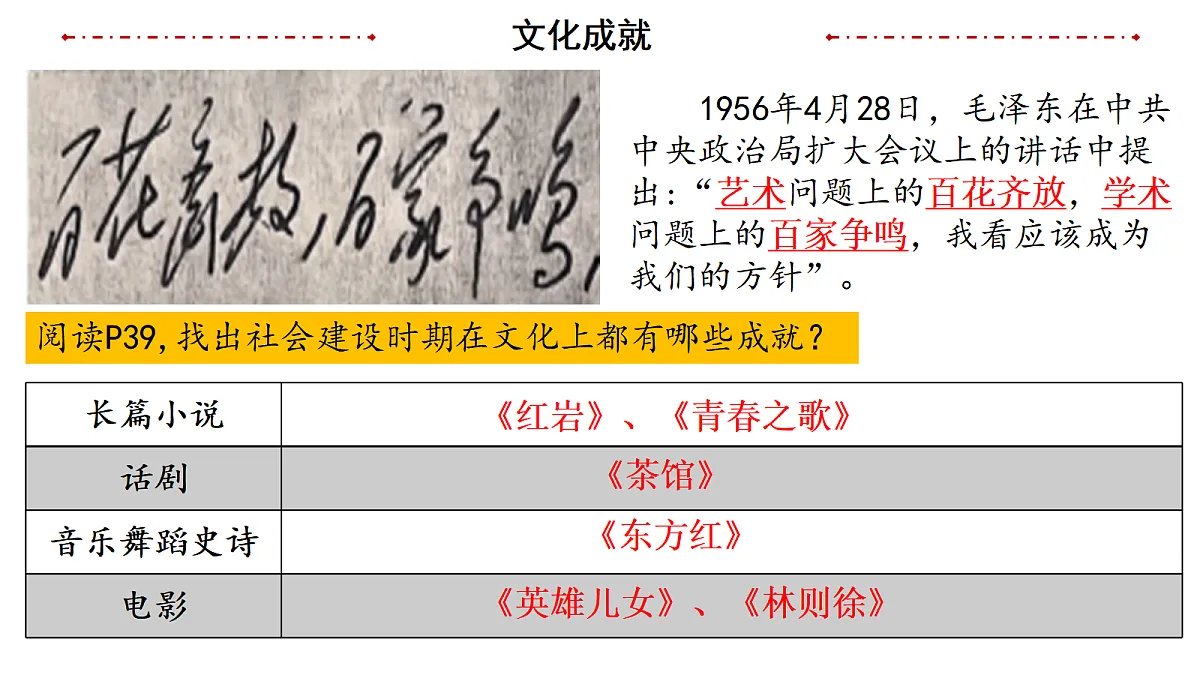 文化成就
百花齐放,百家争鸣,
1956年4月28日，毛泽东在中共
中央政治局扩大会议上的讲话中提
出：“艺术问题上的百花齐放，学术
问题上的百家争鸣，我看应该成为
我们的方针”。
阅读P39,找出社会建设时期在文化上都有哪些成就？
长篇小说 《红岩》、《青春之歌》
话剧 《茶馆》
音乐舞蹈史诗 《东方红》
电影 《英雄儿女》、《林则徐》